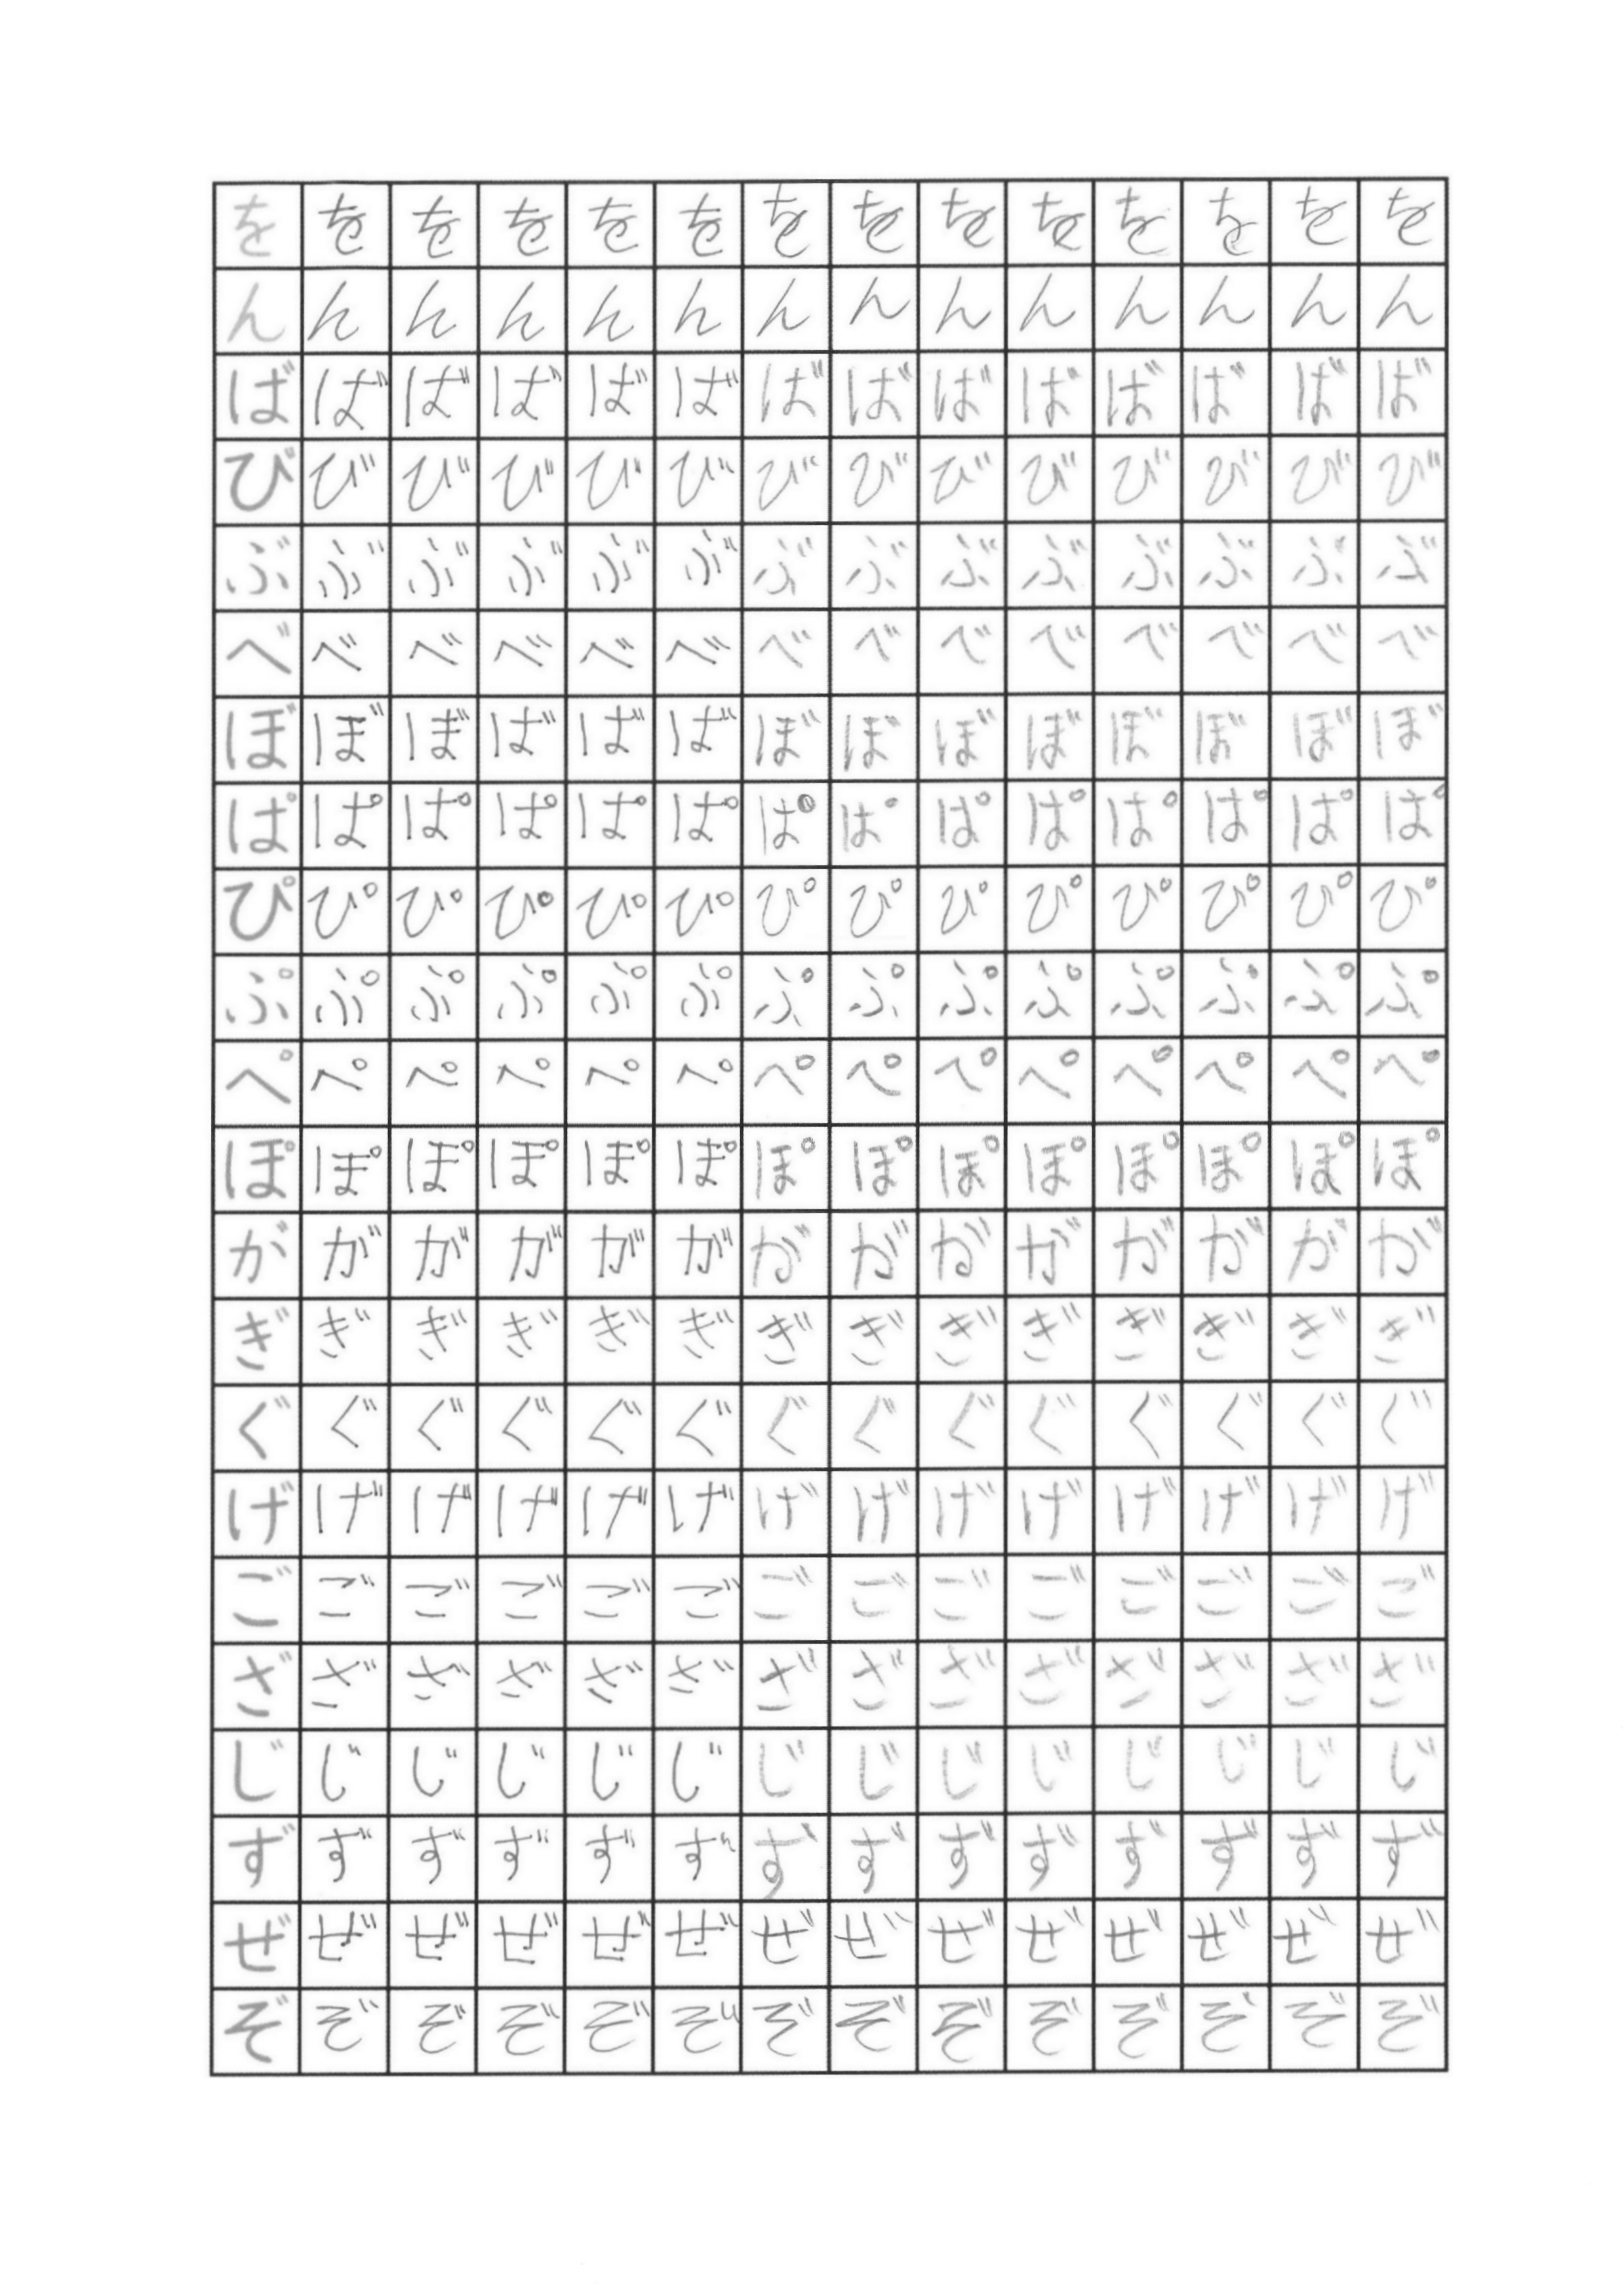 を を を を を を を を を を を を を を
ん ん ん ん ん ん ん ん ん ん ん ん ん ん
ば ば ば ば ば ば ば ば ば ば ば ば ば ば
び び び び び び び び び び び び び び
ぶ ぶ ぶ ぶ ぶ ぶ ぶ ぶ ぶ ぶ ぶ ぶ ぶ ぶ
べ べ べ べ べ べ べ べ べ べ べ べ べ べ
ぼ ぼ ぼ ば ば ば ぼ ぼ ぼ ぼ ぼ ぼ ぼ ぼ
ぱ ぱ ぱ ぱ ぱ ぱ ぱ ぱ ぱ ぱ ぱ ぱ ぱ ぱ
ぴ ぴ ぴ ぴ ぴ ぴ ぴ ぴ ぴ ぴ ぴ ぴ ぴ ぴ
ぷ ぷ ぷ ぷ ぷ ぷ ぷ ぷ ぷ ぷ ぷ ぷ ぷ ぷ
ぺ ぺ ぺ ぺ ぺ ぺ ぺ ぺ ぺ ぺ ぺ ぺ ぺ ぺ
ぽ ぽ ぽ ぽ ぽ ぽ ぽ ぽ ぽ ぽ ぽ ぽ ぽ ぽ
が が が が が が が が が が が が が が
ぎ ぎ ぎ ぎ ぎ ぎ ぎ ぎ ぎ ぎ ぎ ぎ ぎ ぎ
ぐ ぐ ぐ ぐ ぐ ぐ ぐ ぐ ぐ ぐ ぐ ぐ ぐ ぐ
げ げ げ げ げ げ げ げ げ げ げ げ げ げ
ご ご ご ご ご ご ご ご ご ご ご ご ご ご
ざ ざ ざ ざ ざ ざ ざ ざ ざ ざ ざ ざ ざ ざ
じ じ じ じ じ じ じ じ じ じ じ じ じ じ
ず ず ず ず ず ず ず ず ず ず ず ず ず ず
ぜ ぜ ぜ ぜ ぜ ぜ ぜ ぜ ぜ ぜ ぜ ぜ ぜ ぜ
ぞ ぞ ぞ ぞ ぞ ぞ ぞ ぞ ぞ ぞ ぞ ぞ ぞ ぞ